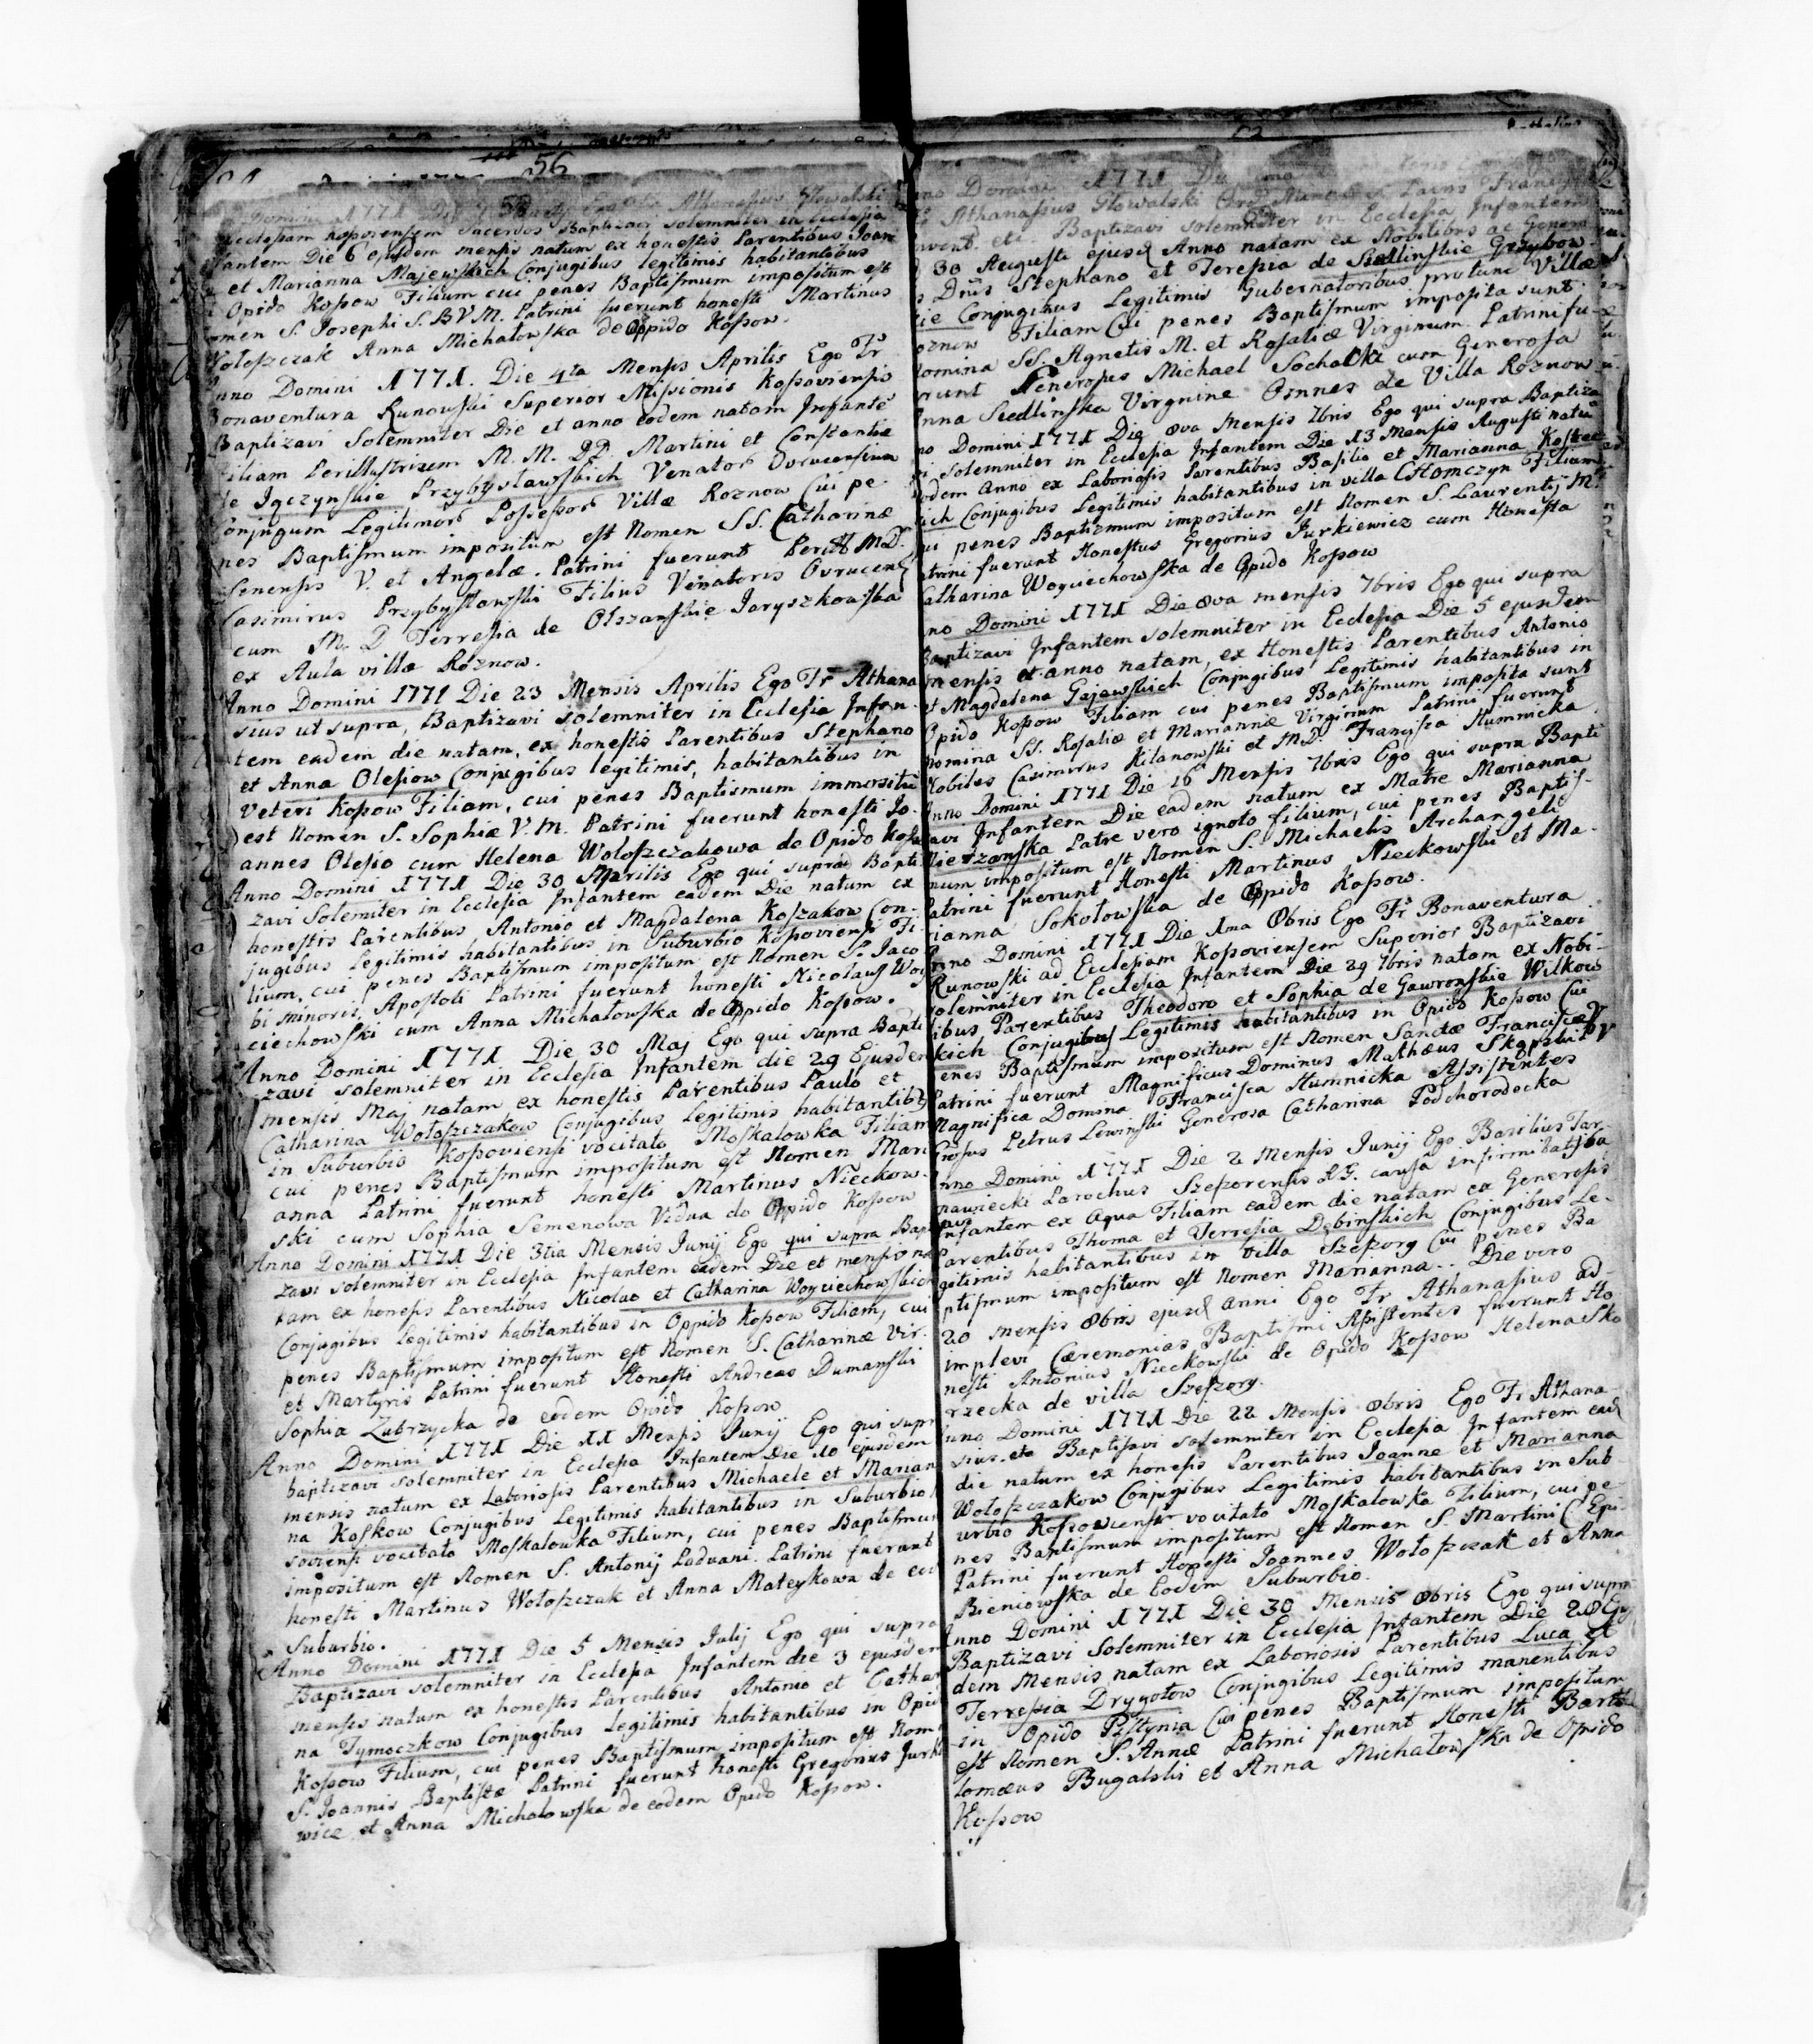 56
Domini 1771 Die Athanasius Kowalski
Ecclesiam Kossoviensem Sacerdos Baptizavi solemniter in Ecclesia
fantem Die 6 ejusdem mensis natum ex honestis Parentibus Joan
et Marianna Majewskich Conjugibus legitimis habitantibus
Opido Kossow Filium cui penes Baptismum impositum est
omen S. Josephi S. B V M. Patrini fuerunt honesti Martinus
Wołoszczak Anna Michałowska de Oppido Kossow.
nno Domini 1771. Die 4ta Mensis Aprilis Ego Fr
Bonaventura Runowski Superior Missionis Kossoviensis
Baptizavi Solemniter Die et anno eodem natam Infante
Filiam Perillustrium M. M. DD. Martini et Constantiæ
de Jączynskie Przybysławskich Venator Ovrucensium
Conjugum Legitimor Possessor Villæ Roznow Cui pe-
nes Baptismum impositum est Nomen SS. Catharinæ
Senensis V. et Angelæ. Patrini fuerunt Perill M D.
Casimirus Przybysławski Filius Venatoris Ovrucens
cum M. D Terresia de Olszanskie Jaryszkowska
ex Aula villæ Roznow.
Anno Domini 1771 Die 23 Mensis Aprilis Ego Fr Athana
sius ut supra, Baptizavi solemniter in Ecclesia Infan-
tem eadem die natam, ex honestis Parentibus Stephano
et Anna Olesiow Conjugibus legitimis, habitantibus in
Veteri Kossow Filiam, cui penes Baptismum impositu
est Nomen S. Sophiæ V. M. Patrini fuerunt honesti Jo-
annes Olesio cum Helena Wołoszczakowa de Opido Koss
Anno Domini 1771 Die 30 Aprilis Ego qui supra Bapti
zavi Solemiter in Ecclesia Infantem eadem Die natum ex
honestis Parentibus Antonio et Magdalena Koszakow Con-
jugibus Legitimis habitantibus in Suburbio Kossoviensi Fi-
lium, cui penes Baptismum impositum est Nomen S. Jaco
bi minoris, Apostoli Patrini fuerunt honesti Nicolaus Woy
ciechowski cum Anna Michałowska de Oppido Kossow.
Anno Domini 1771 Die 30 Maj Ego qui supra Bapti
zavi solemniter in Ecclesia Infantem die 29 Ejusdem
mensis Maj natam ex honestis Parentibus Paulo et
Catharina Wołoszczakow Conjugibus legitimis habitantib
in Suburbio Kossoviensi vocitato Moskalowka Filiam
cui penes Baptismum impositum est Nomen Mari
anna Patrini fuerunt honesti Martinus Nieckow-
ski cum Sophia Semenowa Vidua de Oppido Kossow
Anno Domini 1771 Die 3tia Mensis Junij Ego qui supra Bapt
zavi solemniter in Ecclesia Infantem eadem Die et mensis na
tam ex honesis Parentibus Nicolao et Catharina Woyciechowskich
Conjugibus legitimis habitantibus in Oppido Kossow Filiam, cui
penes Baptismum impositum est Nomen S. Catharinæ Vir-
et Martyris Patrini fuerunt Honesti Andreas Dumanski
Sophia Zubrzycka de eodem Opido Kossow
Anno Domini 1771 Die 11 Mensis Junij Ego qui supr
baptizavi solemniter in Ecclesia Infantem Die 10 ejusdem
mensis natum ex Laboriosis Parentibus Michaele et Marian
na Koskow Conjugibus Legitimis habitantibus in Suburbio
soviensi vocitato Moskalowka Filium, cui penes Baptismum
impositum est Nomen S. Antonij Paduani. Patrini fuerunt
honesti Martinus Wołoszczak et Anna Mateykowa de eod
Suburbio.
Anno Domini 1771 Die 5 Mensis Julij Ego qui supra
Baptizavi solemniter in Ecclesia Infantem die 3 ejusdem
mensis natum ex honestis Parentibus Antonio et Cathar
na Tymoczkow Conjugibus legitimis habitantibus in Opid
Kossow Filium, cui penes Baptismum impositum est Nom
S. Joannis Baptistæ Patrini fuerunt honesti Gregorius Jurki
wicz et Anna Michałowska de eodem Opido Kossow.
no Domini 1771 Die
Athanasius Kowalski Ord. Francis
Baptizavi solemniter in Ecclesia Infantem
30 Augusti ejusd Anno natam ex Nobilibus ac Generos
Dnis Stephano et Teresia de Siedlinskie Grzybow
Conjugibus Legitimis Gubernatoribus protunc Villæ
oznow Filiam Cui penes Baptismum imposita sunt
Nomina SS. Agnetis M. et Rosaliæ Virginum. Patrini fu-
erunt Generosus Michael Sochacki cum Generosa
Anna Siedlinska Virgnine Omnes de Villa Roznow
no Domini 1771 Die 8va Mensis 7bris Ego qui supra Baptiza
vi solemniter in Ecclesia Infantem Die 13 Mensis Augusti natu
eodem Anno ex Laboriosis Parentibus Basilio et Marianna
ich Conjugibus Legitimis habitantibus in villa Chomczyn Filium
cui penes Baptizmum impositum est Nomen S. Laurentij M.
Patrini fuerunt Honestus Gregorius Jurkiewicz cum Honesta
Catharina Woyciechowska de Oppido Kossow
no Domini 1771 Die 8va mensis 7bris Ego qui supra
Baptizavi Infantem solemniter in Ecclesia Die 5 ejusdem
mensis et anno natam, ex Honestis Parentibus Antonio
et Magdalena Gajewskich Conjugibus Legitimis habitantibus in
Opido Kossow Filiam cui penes Baptismum imposita sunt
nomina SS. Rosaliæ et Mariannæ Virginum Patrini fuerunt
Nobiles Casimirus Kilanowski et M.D. Francisca Humnicka
Anno Domini 1771 Die 16 Mensis 7bris Ego qui supra Bapti
zavi Infantem Die eadem natum ex Matre Marianna
Patre vero ignoto filium, cui penes Baptis-
mum impositum est Nomen S. Michaelis Archangeli
Patrini fuerunt Honesti Martinus Nieckowski et Ma-
rianna Sokołowska de Oppido Kossow.
Anno Domini 1771 Die 1ma 8bris Ego Fr Bonaventura
Runowski ad Ecclesiam Kossoviensem Superior Baptizavi
solemniter in Ecclesia Infantem Die 29 7bris natam ex Nobi-
libus Parentibus Theodoro et Sophia de Gawronskie Wilkow
skich Conjugibus Legitimis habitantibus in Opido Kossow Cui
penes Baptismum impositum est Nomen Sanctæ Franciscæ V
Patrini fuerunt Magnificus Dominus Mathæus
Magnifica Domina Francisca Humnicka Assistentes
Grosus Petrus Lewinski Generosa Catharina Podhorodecka
nno Domini 1771 Die 2 Mensis Junij Ego Basilius Tar-
nawiecki Parochus Szeszorensis R.G. causa infirmitatis ba
Infantem ex Aqua Filiam eadem die natam ex Generosis
Parentibus Thoma et Terresia Dębinskich Conjugibus Le-
gitimis habitantibus in Villa Szeszory Cui penes Ba
ptismum impositum est Nomen Marianna. Die vero
20 mensis 8bris ejusd anni Ego Fr Athanasius ad-
implevi Cæremonias Baptismi Assistentes fuerunt Ho
nesti Antonius Nieckowski de Opido Kossow Helena Sko
rzecka de villa Szeszory.
Anno Domini 1771 Die 22 Mensis 8bris Ego Fr Athana-
sius etc Baptisavi solemniter in Ecclesia Infantem ead
die natum ex honesis Parentibus Joanne et Marianna
Wołoszczakow Conjugibus Legitimis habitantibus in Sub
urbio Kossowiensi vocitato Moskalowka Filium, cui pe-
nes Baptismum impositum est Nomen S. Martini Epi-
Patrini fuerunt Honesti Joannes Wołoszczak et Anna
Bieniowska de Eodem Suburbio.
Anno Domini 1771 Die 30 Mensis 8bris Ego qui supra
Baptizavi Solemniter in Ecclesia Infantem Die 28 Eius
dem Mensis natam ex Laboriosis Parentibus Luca et
Terresia Drygotow Conjugibus Legitimis manentibus
in Opido Pistynia Cui penes Baptismum impositum
est Nomen S. Annæ Patrini fuerunt Honesti Barto
lomæus Bugalski et Anna Michałowska de Opido
Kossow